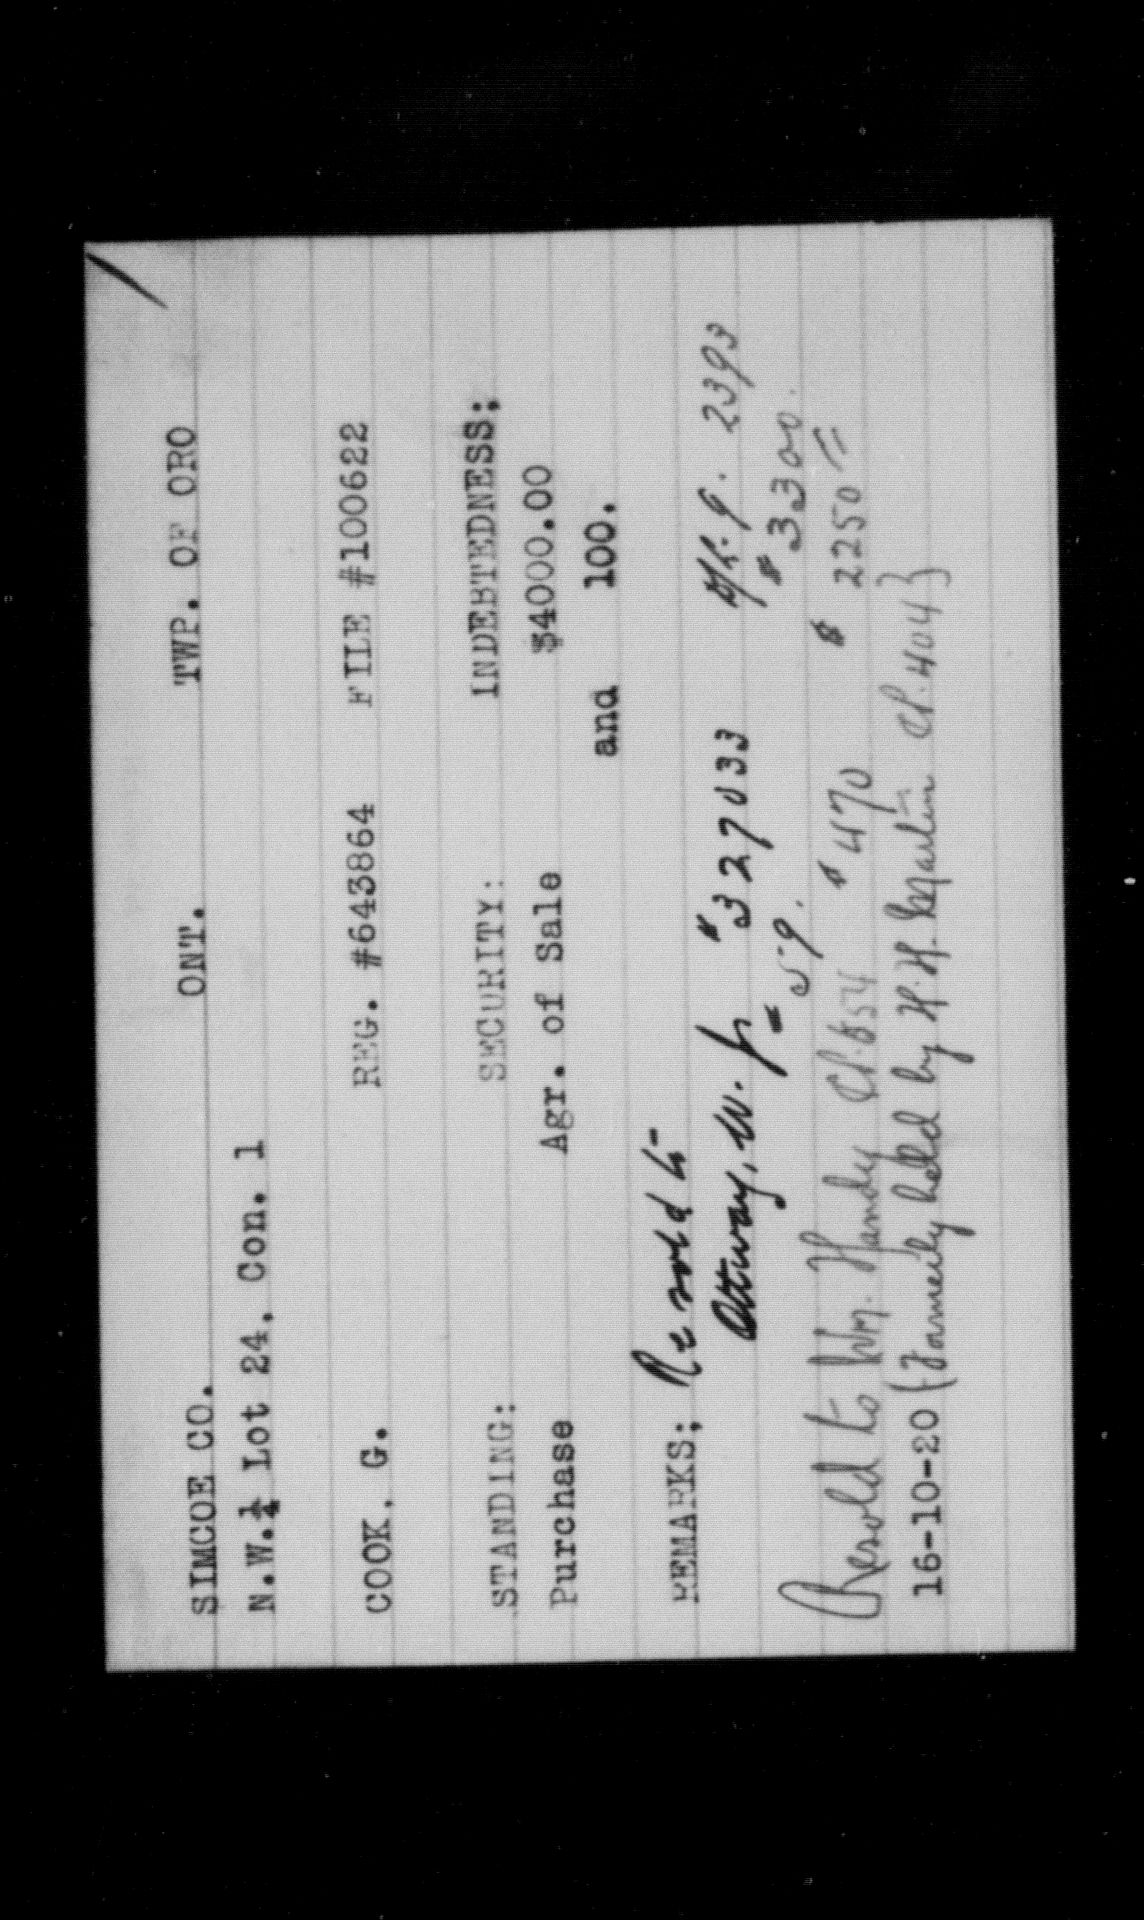 SIMCOE CO. ONT. TWP. OF ORO
N.W.¼ Lot 24, Con. 1
COOK, G. REG. #643864 FILE #100622
STANDING: SECURITY: INDEBTEDNESS:
Purchase Agr. of Sale $4000.00
and 100.
REMARKS: Resold to
Attway, W. #327033 2393
$3300.
Resold to Wm. Handy $470 $2250=
16-10-20 (Formerly held by H.H. Martin 404)